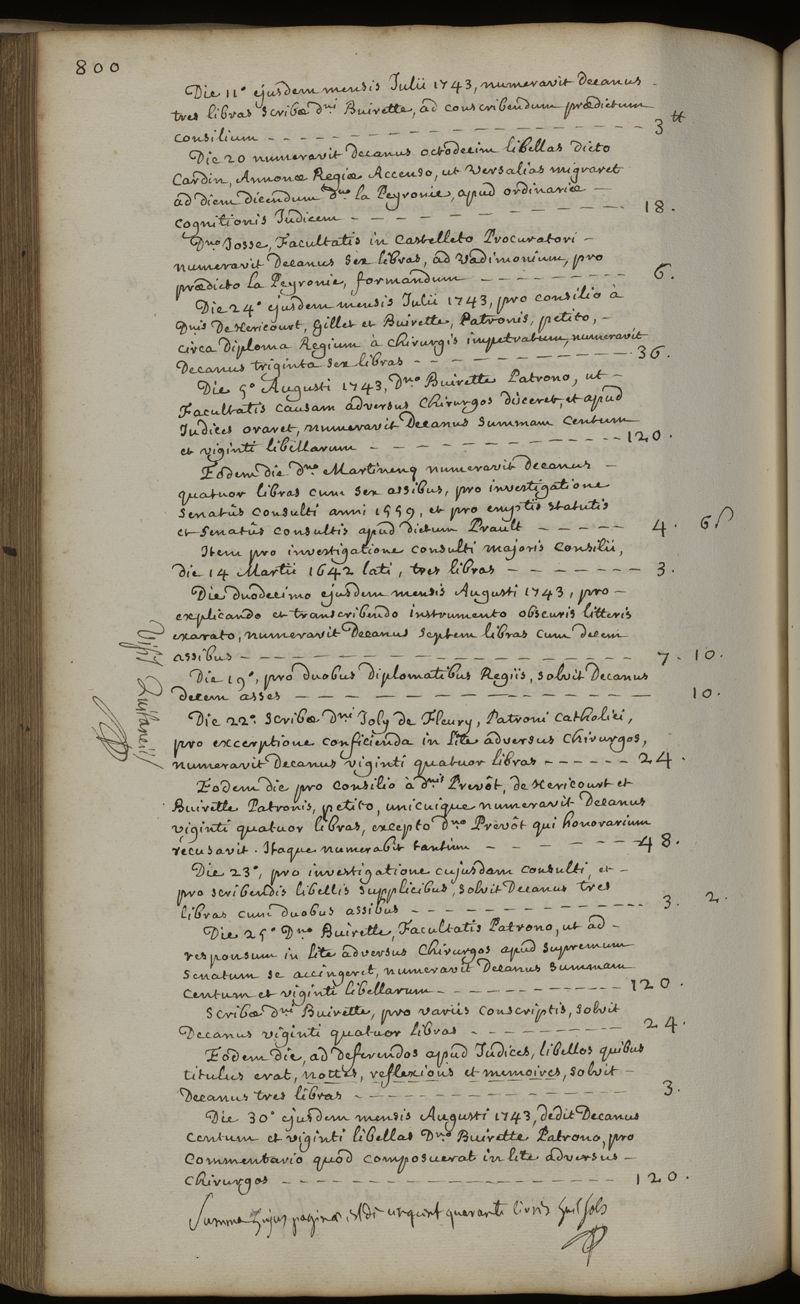 800
Die 11° ejusdem mensis Julii 1743, numeravit Decanus
tres libras scribæ dni Buirette, ad conscribendum prædictum
consilium - - - 3 tt
Die 20 numeravit Decanus octodecim libellas dicto
Cardin, Annonæ Regiæ Accenso, ut Versalias migraret
ad diem dicendum dno la Peyronie, apud ordinariæ -
cognitionis Judicem - - - 18.
Dno Josse, Facultatis in Castelleto Procuratori -
numeravit Decanus sex libras, ad vadimonium, pro
prædicto la Peyronie, formandum - - - 6.
Die 24° ejusdem mensis Julii 1743, pro consilio à
Dnis De Hericourt, Gillet et Buirette, Patronis, petito, -
circa Diploma Regium à chirurgis impetratum, numeravit
Decanus triginta sex libras - - - 36.
Die 5° Augusti 1743, Dno Buirette Patrono, ut -
Facultatis causam adversus Chirurgos diceret, et apud
Judices oraret, numeravit Decanus summam centum
et viginti libellarum - - - 120.
Eodem die dno Martinenq numeravit decanus -
quatuor libras cum sex assibus, pro investigatione
Senatûs Consulti anni 1559, et pro emptis statutis
et Senatûs consultis apud dictum Prault - - - 4. 6 s
Item pro investigatione consulti majoris Consilii,
die 14 Martii 1642 lati, tres libras - - - 3.
Die duodecimo ejusdem mensis Augusti 1743, pro -
explicando et transcribendo instrumento obscuris litteris
exarato, numeravit Decanus septem libras cum decem
assibus - - - 7. 10.
Die 19°, pro duobus Diplomatibus Regiis, solvit Decanus
decem asses - - - 10.
Die 22° scribæ Dni Joly de Fleury, Patroni catholici,
pro excerptione conficienda in lite adversus chirurgos,
numeravit Decanus viginti quatuor libras - - - 24.
Eodem die pro consilio à dnis Prevôt, de Hericourt et
Buirette Patronis, petito, unicuique numeravit Decanus
viginti quatuor libras, excepto dno Prevôt qui honorarium
recusavit. Itaque numerabit tantum - - - 48.
Die 23°, pro investigatione cujusdam consulti, et -
pro scribendis libellis supplicibus, solvit Decanus tres
libras cum duobus assibus - - - 3. 2.
Die 25° Dno Buirette, Facultatis Patrono, ut ad -
responsum in lite adversus Chirurgos apud supremum
Senatum se accingeret, numeravit Decanus summam
centum et viginti libellarum - - - 120.
Scribæ dni Buirette, pro variis conscriptis, solvit
Decanus viginti quatuor libras - - - 24.
Eodem die, ad deferendos apud Judices, libellos quibus
titulus erat, nottes, reflexions et memoires, solvit -
Decanus tres libras - - - 3.
Die 30° ejusdem mensis Augusti 1743, dedit Decanus
centum et viginti libellas Dno Buirette Patrono, pro
Commentario quod composuerat in lite adversus -
chirurgos - - - 120.
Summa hujus paginæ est de cinq cent quarante livres huit sols